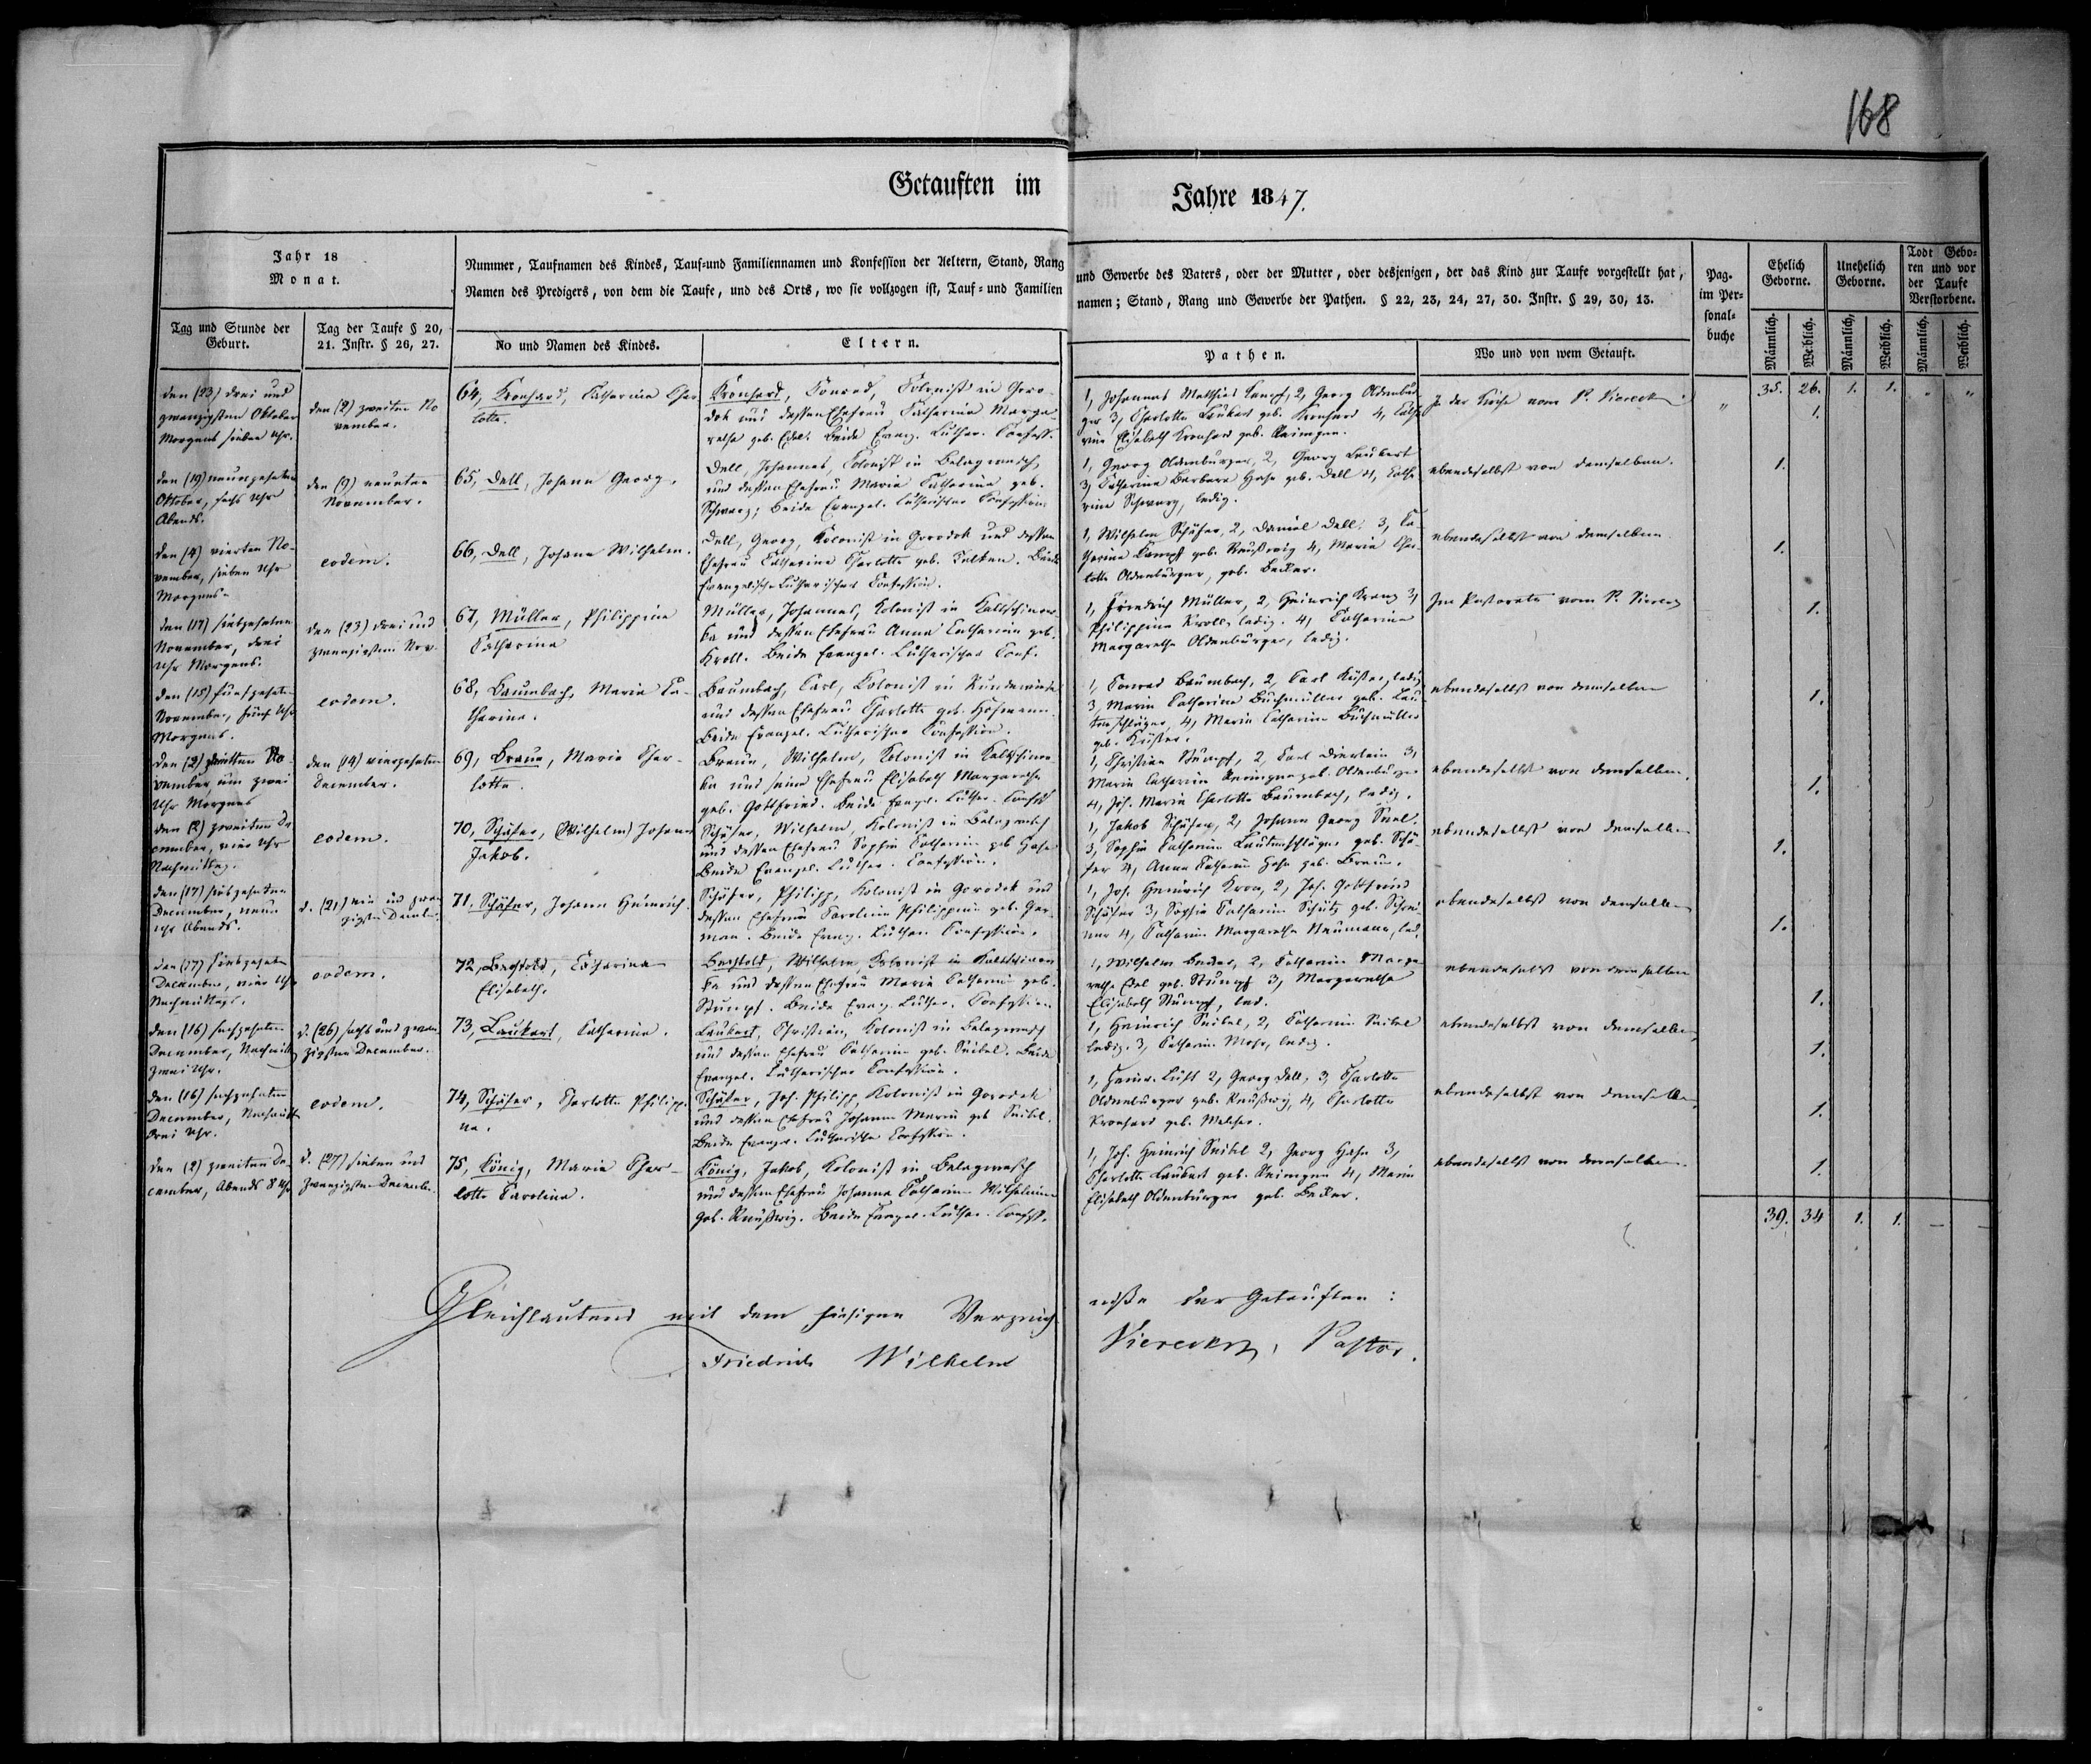 168
Getauften im Jahre 1847.
Jahr 18
Monat.
Nummer, Taufnamen des Kindes, Tauf-und Familiennamen und Konfession der Aeltern, Stand, Rang und Gewerbe des Vaters, oder der Mutter, oder desjenigen, der das Kind zur Taufe vorgestellt hat,
Namen des Predigers, von dem die Taufe, und des Orts, wo sie vollzogen ist, Tauf- und Familien namen; Stand, Rang und Gewerbe der Pathen. § 22, 23, 24, 27, 30. Instr. § 29, 30, 13.
Pag.
im Per-
sonal-
buche
Ehelich
Geborne.
Unehelich
Geborne.
Todt Gebo-
ren und vor
der Taufe
Verstorbene.
Tag und Stunde der
Geburt.
Tag der Taufe § 20,
21. Instr. § 26, 27.
No und Namen des Kindes.
Eltern.
Pathen.
Wo und von wem Getauft.
Männlich.
Weiblich.
Männlich.
Weiblich.
Männlich.
Weiblich.
35. 26. 1. 1. " "
den (23) drei und
zwanzigsten Oktober
Morgens sieben Uhr.
den (2) zweiten No
vember.
64, Kronhard, Catharina Char
lotte.
Kronhard, Conrad, Colonist in Goro-
dok und dessen Ehefrau Catharina Marga-
retha geb. Edel. Beide Evang. Luther. Confess.
1, Johannes Matthias Kampf, 2, Georg Oldenbur-
ger 3, Charlotte Laukert geb. Kronhard 4, Catha
rina Elisabeth Kronhard geb.
In der Kirche vom P. Viereck
"
1.
den (19) neunzehnten
Oktober, sechs Uhr
Abends.
den (9) neunten
November.
65, Dell, Johann Georg.
Dell, Johannes, Colonist in Belagwesch,
und dessen Ehefrau Maria Catharina geb.
Schwarz; beide Evangel. Lutherischer Confession.
1, Georg Oldenburger, 2, Georg Laukert
3, Catharina Barbara Hahn geb. Dell 4, Catha
rina Schwarz, ledig.
ebendaselbst von demselben.
1.
den (4) vierten No-
vember, sieben Uhr
Morgens.
eodem.
66, Dell, Johann Wilhelm.
Dell, Georg, Kolonist in Gorodok und dessen
Ehefrau Catharina Charlotte geb. Beide
Evangelisch-Lutherischer Confession.
1, Wilhelm Schäfer, 2, Daniel Dell. 3, Ca-
tharina Kampf geb. 4, Maria Char
lotte Oldenburger, geb. Becker.
ebendaselbst von demselben
1.
den (17) siebzehnten
November, drei
Uhr Morgens.
den (23) drei und
zwanzigsten Nov.
67, Müller, Philippina
Catharina
Müller, Johannes, Kolonist in Kaltschinow
ka und dessen Ehefrau Anna Catharina geb.
Kroll. Beide Evangel. Lutherischer Conf.
1, Friedrich Müller, 2, Heinrich 3,
Philippina Kroll, ledig. 4, Catharina
Margaretha Oldenburger, ledig.
Im Pastorate vom P. Viereck
1.
den (15) fünfzehnten
November, fünf Uhr
Morgens.
eodem.
68, Baumbach, Maria Ca-
tharina.
Baumbach, Carl, Colonist in Rundewiese
und dessen Ehefrau Charlotte geb. Hofmann.
Beide Evangel. Lutherischer Confession.
1, Conrad Baumbach, 2, Carl Küster, ledig
3, Maria Catharina Buchmüller geb. Lau-
tenschläger, 4, Maria Catharina Buchmüller
geb. Küster.
ebendaselbst von demselben
1.
den (2) zweiten No-
vember, um zwei
Uhr Morgens
den (14) vierzehnten
December.
69, Braun, Maria Char-
lotte.
Braun, Wilhelm, Kolonist in Kaltschinow-
ka und seine Ehefrau Elisabeth Margaretha
geb. Gottfried. Beide Evangel. Luther. Confess
1, Christian Stumpf, 2, Carl Dierlein 3,
Maria Catharina geb. Oldenburger
4, Joh. Maria Charlotte Baumbach, ledig.
ebendaselbst von demselben.
1.
den (2) zweiten De
cember, vier Uhr
Nachmittag.
eodem.
70, Schäfer, (Wilhelm) Johann
Jakob.
Schäfer, Wilhelm, Kolonist in Belagwesch
und dessen Ehefrau Sophia Catharina geb Hahn
Beide Evangel. Luther. Confession.
1, Jakob Schäfer, 2, Johann Georg
3, Sophia Catharina Lautenschläger geb. Schä-
fer 4, Anna Catharina Hahn geb. Braun.
ebendaselbst von demselben
1.
den (17) siebzehnten
December, neun
Uhr Abends.
d. (21) ein und zwan
zigsten Decemb.
71, Schäfer, Johann Heinrich.
Schäfer, Philipp, Kolonist in Gorodok und
dessen Ehefrau Carolina Philippina geb. Ger-
man. Beide Evang. Luther. Confession.
1, Joh. Heinrich Kron, 2, Joh. Gottfried
Schäfer 3, Sophia Catharina Schütz geb. Schrei-
ner 4, Catharina Margaretha Neumann, led.
ebendaselbst von demselben
1.
den (17) siebzehnten
December, vier Uhr
Nachmittags.
eodem.
72, Berthold, Catharina
Elisabeth.
Berthold, Wilhelm Kolonist in Kaltschinow
ka und dessen Ehefrau Maria Catharina geb.
Stumpf. Beide Evang. Luther. Confession
1, Wilhelm Becker, 2, Catharina Marga
retha Edel geb. Stumpf 3, Margaretha
Elisabeth Stumpf, led.
ebendaselbst von demselben
1.
den (16) sechzehnten
December, Nachmitt
zwei Uhr.
d. (26) sechs und zwan
zigsten December.
73, Laukert, Catharina.
Laukert, Christian, Kolonist in Belagwesch
und dessen Ehefrau Catharina geb. Seibel. Beide
Evangel. Lutherischer Confession.
1, Heinrich Seibel, 2, Catharina Seibel
ledig. 3, Catharina Mohr, ledig.
ebendaselbst von demselben
1.
den (16) sechzehnten
December, Nachmitt
drei Uhr.
eodem.
74, Schäfer, Charlotte Philippi-
na.
Schäfer, Joh. Philipp, Kolonist in Gorodok
und dessen Ehefrau Johanna Maria geb Seibel.
Beide Evangel. Lutherischer Confession.
1, Heinr. 2, Georg Dell, 3, Charlotte
Oldenburger geb. 4, Charlotte
Kronhard geb. Melcher.
ebendaselbst von demselben
1.
den (2) zweiten De-
cember, Abends 8 Uhr
d. (27) sieben und
zwanzigsten December.
75, König, Maria Char-
lotte Carolina.
König, Jakob, Kolonist in Belagwesch
und dessen Ehefrau Johanna Catharina Wilhelmina
geb. Beide Evangel. Luther. Confess.
1, Joh. Heinrich Seibel 2, Georg Hahn 3,
Charlotte Laukert geb. 4, Maria
Elisabeth Oldenburger geb. Becker.
ebendaselbst von demselben.
1.
39. 34 1. 1. – –
Gleichlautend mit dem hiesigen Verzeich nisse der Getauften:
Friedrich Wilhelm Viereck, Pastor.